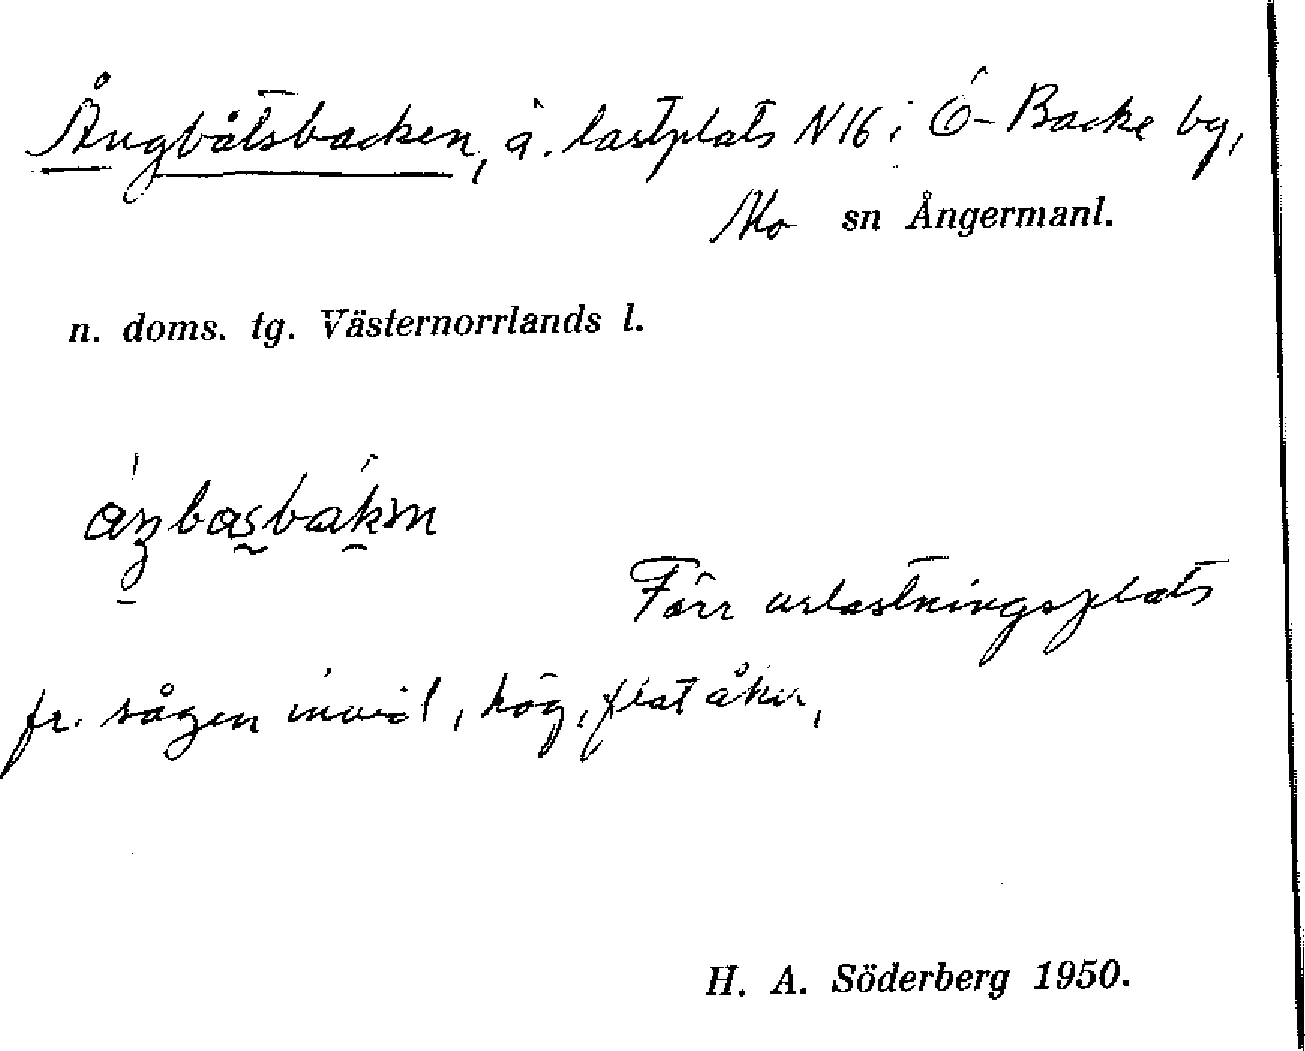 Ångbåtsbacken, å. lastplats N 16 i Ö-Backe by,
Mo sn Ångermanl.
n. doms. tg. Västernorrlands l.
Förr urlastningsplats
fr. sågen invid, hög, flat åker,
H. A. Söderberg 1950.